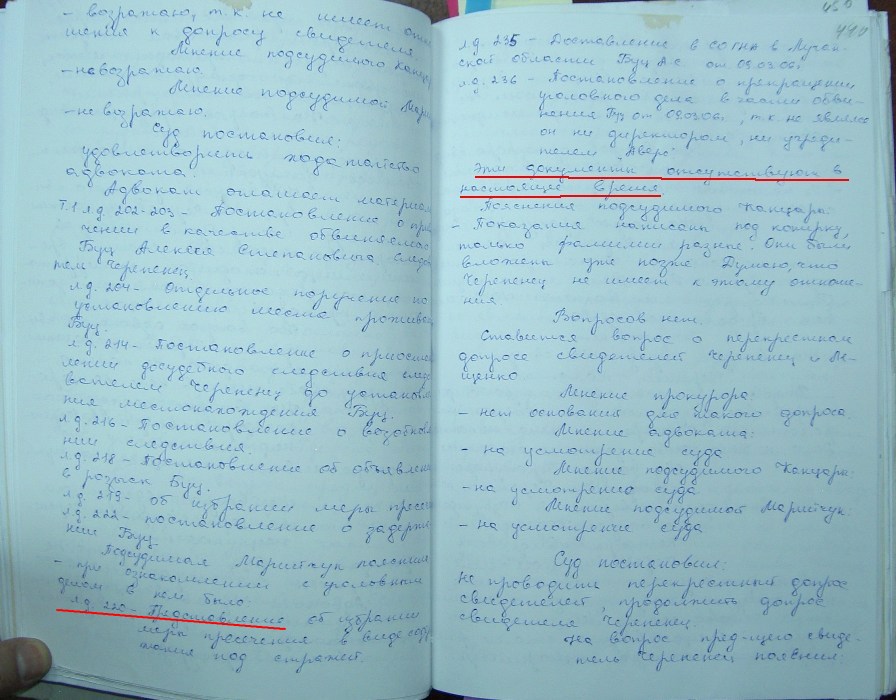 - возражаю, т.к. не имеет отно
шения к допросу свидетеля
Мнение подсудимого Канцара
- не возражаю.
Мнение подсудимой Марит
- не возражаю.
Суд постановил:
удовлетворить ходатайство
адвоката.
Адвокат оглашает материал
Т.1 л.д. 202-203 - Постановление о при
чении в качестве обвиняемого
Буц Алексея Степановича следов
тем Черепенец
л.д. 204 - Отдельное поручение по
установлению места прожива
Буц.
л.д. 214 - Постановление о приоста
лении досудебного следствия след
вателем Черепенец до установл
ния местонахождения Буц.
л.д. 216 - Постановление о возобнов
нии следствия.
л.д. 218 - Постановление об объявлени
в розыск Буц.
л.д. 219 - об избрании меры пресеч
л.д. 222 - постановление о задерж
нии Буц
Подсудимая Маритчук пояснил
- при ознакомлении с уголовным
делом в нем было:
л.д. 220 - Представление об избрании
меры пресечения в виде содер
жания под стражей.
440
л.д. 235 - Доставление в СО ГНА в Луган
ской области Буц А.С от 09.03.06.
л.д. 236 - Постановление о прекращении
уголовного дела в части обви-
нения Буц от 09.03.06., т.к не являлся
он ни директором, ни учреди-
телем "Аверс"
Эти документы отсутствуют в
настоящее время
Пояснения подсудимого Канцара:
- Показания написаны под копирку,
только фамилии разные. Они были
вложены уже позже Думаю, что
Черепенец не имеет к этому отноше-
ния
Вопросов нет.
Ставится вопрос о перекрестном
допросе свидетелей Черепенец и
щенко
Мнение прокурора:
- нет оснований для такого допроса
Мнение адвоката:
- на усмотрение суда
Мнение подсудимого Канцара:
- на усмотрение суда
Мнение подсудимой Маритчук.
- на усмотрение суда
Суд постановил:
Не проводить перекрестный допрос
свидетелей, продолжить допрос
свидетеля Черепенец.
На вопрос пред-щего свиде-
тель Черепенец пояснил: